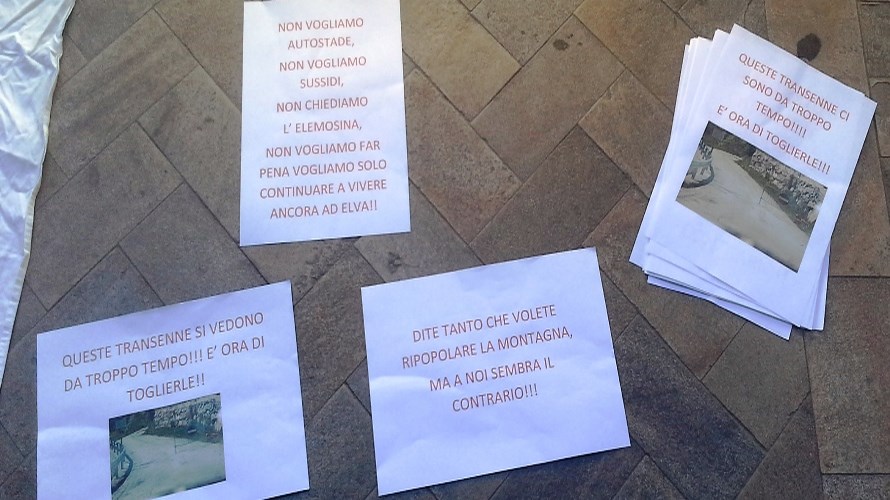 NON VOGLIAMO
AUTOSTADE,
NON VOGLIAMO
SUSSIDI,
NON CHIEDIAMO
L' ELEMOSINA,
NON VOGLIAMO FAR
PENA VOGLIAMO SOLO
CONTINUARE A VIVERE
ANCORA AD ELVA!!
QUESTE TRANSENNE CI
SONO DA TROPPO
TEMPO!!!!
E' ORA DI TOGLIERLE!!!
QUESTE TRANSENNE SI VEDONO
DA TROPPO TEMPO!!! E' ORA DI
TOGLIERLE!!
DITE TANTO CHE VOLETE
RIPOPOLARE LA MONTAGNA,
MA A NOI SEMBRA IL
CONTRARIO!!!